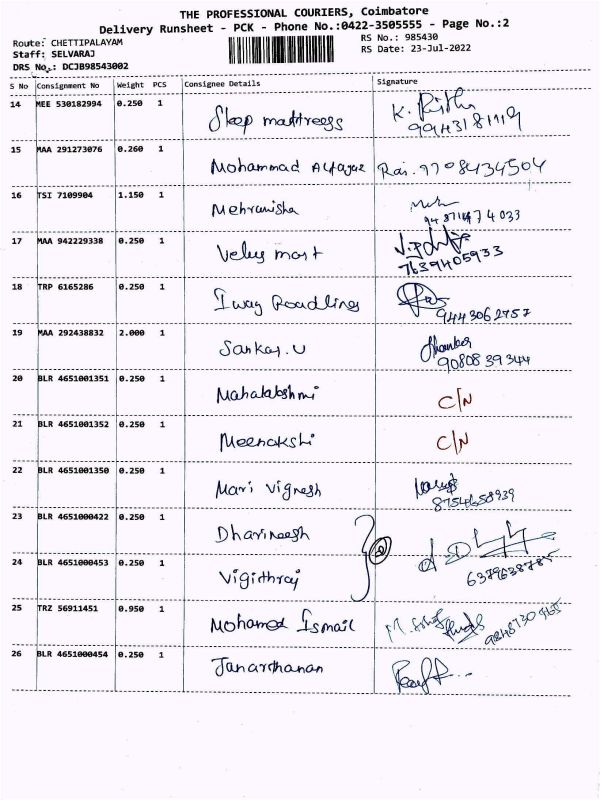 THE PROFESSIONAL COURIERS, Coimbatore
Delivery Runsheet - PCK - Phone No.:0422-3505555 - Page No.:2
Route: CHETTIPALAYAM RS No.: 985430
Staff: SELVARAJ RS Date: 23-Jul-2022
DRS No.: DCJB98543002
S No Consignment No Weight PCS Consignee Details Signature
14 MEE 530182994 0.250 1 Sleep mattress K.
15 MAA 291273076 0.260 1 Mohammad 9708434504
16 TSI 7109904 1.150 1 Mehrunisha
17 MAA 942229338 0.250 1 Velus mart 7639405933
18 TRP 6165286 0.250 1 Iway Roadlines 9443062757
19 MAA 292438832 2.000 1 Sankar.U 9080839344
20 BLR 4651001351 0.250 1 Mahalakshmi C/N
21 BLR 4651001352 0.250 1 Meenakshi C/N
22 BLR 4651001350 0.250 1 Mari Vignesh 8754658939
23 BLR 4651000422 0.250 1 Dharineesh
24 BLR 4651000453 0.250 1 Vigithraj 6379638785
25 TRZ 56911451 0.950 1 Mohamed Ismail
26 BLR 4651000454 0.250 1 Janarthanan